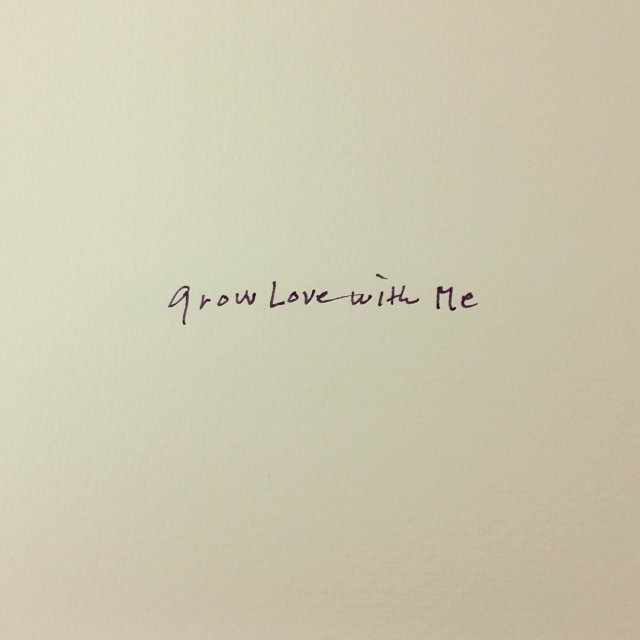 grow Love with Me